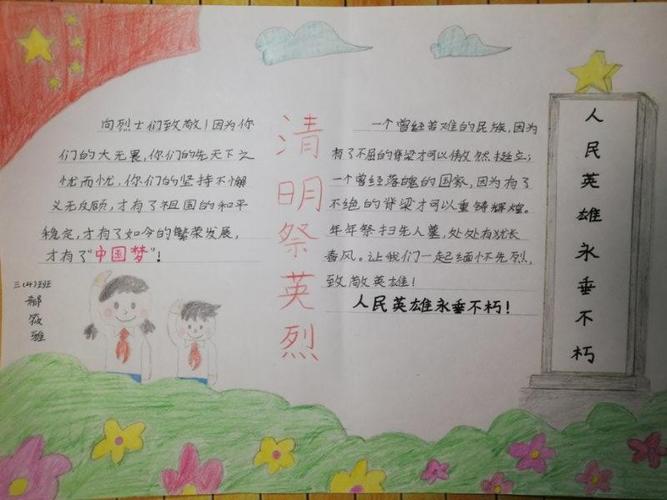 向烈士们致敬！因为你
们的大无畏，你们的先天下之
忧而忧，你们的坚持不懈
义无反顾，才有了祖国的和平
稳定，才有了如今的繁荣发展，
才有了“中国梦”！
三(4)班
郝
筱
雅
清
明
祭
英
烈
一个曾经苦难的民族，因为
有了不屈的脊梁才可以傲然挺立；
一个曾经落魄的国家，因为有了
不绝的脊梁才可以重铸辉煌。
年年祭扫先人墓，处处有犹长
春风。让我们一起缅怀先烈，
致敬英雄！
人民英雄永垂不朽！
人
民
英
雄
永
垂
不
朽